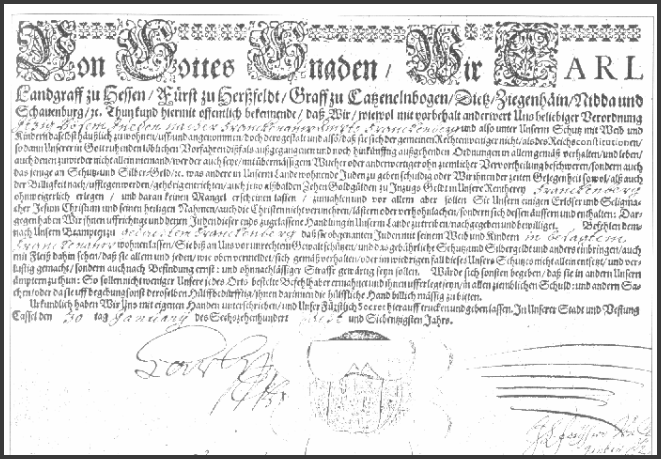 Von Gottes Gnaden / Wir CARL
Landgraff zu Hessen / Fürst zu Herßfeldt / Graff zu Catzenelnbogen / Dietz / Ziegenhäin / Nidda und
Schauenburg / ꝛc. Thun kund hiermit offentlich bekennende / daß Wir / wiewol mit vorbehalt anderwert Uns beliebiger Verordnung
und also unter Unserm Schutz mit Weib und
Kindern daselbst häußlich zu wohnen / uff- und angenommen / doch dergestalt und also / daß sie sich der gemeinen Rechten weniger nicht / als des Reichs constitutionen /
so dann Unserer in Gott ruhenden löblichen Vorfahren dißfals außgegangen und noch verkünfftig außgehenden Ordnungen in allem gemäß verhalten / und leben /
auch denen zuwieder nicht allein niemand / wer der auch seye / mit übermässigem Wucher oder anderwertiger ohnziemlicher Vervortheilung beschweren / sondern auch
das jenige an Schutz- und Silber-Geld / ꝛc. was andere in Unserm Lande wohnende Juden zu geben schuldig oder Wir ihnen der zeiten Gelegenheit sowol / als auch
der Billigkeit nach / ufflegen werden / gehörig entrichten / auch jetzo alsbalden Zehen Goldgülden zu Inzugs Geld in Unsere Rentherey Franckenberg
ohnweigerlich erlegen / und daran keinen Mangel erscheinen lassen / zumahlen und vor allem aber sollen Sie Unsern einigen Erlöser und Seligma-
cher Jesum Christum und seinen heiligen Nahmen / auch die Christen nicht verunehren / lästern oder verhohnlachen / sondern sich dessen äussern und enthalten: Dar-
gegen haben Wir ihnen uffrichtige und denen Juden dieser ends zugelassene Handlung in Unserm Lande zu treiben / nachgegeben und bewilliget. Befehlen dem-
nach Unsern Beampten zu Franckenberg daß sie obgenanten Juden mit seinem Weib und Kindern in
wohnen lassen / Sie biß an Uns vor unrechtem Gewalt schützen / und das gebührliche Schutz- und Silbergeld und anders einbringen / auch
mit Fleiß dahin sehen / daß sie allem und jeden / wie oben vermeldet / sich gemäß verhalten / oder im wiedrigen fall dieses Unsers Schutzes nicht allein entsetzt / und ver-
lustig gemacht / sondern auch nach Befindung ernst- und ohnnachlässiger Straffe gewärtig seyn sollen. Würde sich sonsten begeben / daß sie in andern Unsern
ämptern zu thun: So sollen nicht weniger Unsere jedes Orts bestelte Befehlhaber ermahnet und ihnen ufferleget seyn / in allen ziemlichen Schuld- und andern Sa-
chen / oder da sie uff begebung sonst deroselben Hülff bedürfftig / ihnen darinnen die hülffliche Hand billich mässig zu bieten.
Urkundlich haben Wir Uns mit eigenen Handen unterschrieben / und Unser Fürstlich Secret hierauff trucken und geben lassen. In Unserer Stadt und Vestung
Cassel den 30 tag January des Sechszehenhundert und Siebenzigsten Jahrs.
Carl